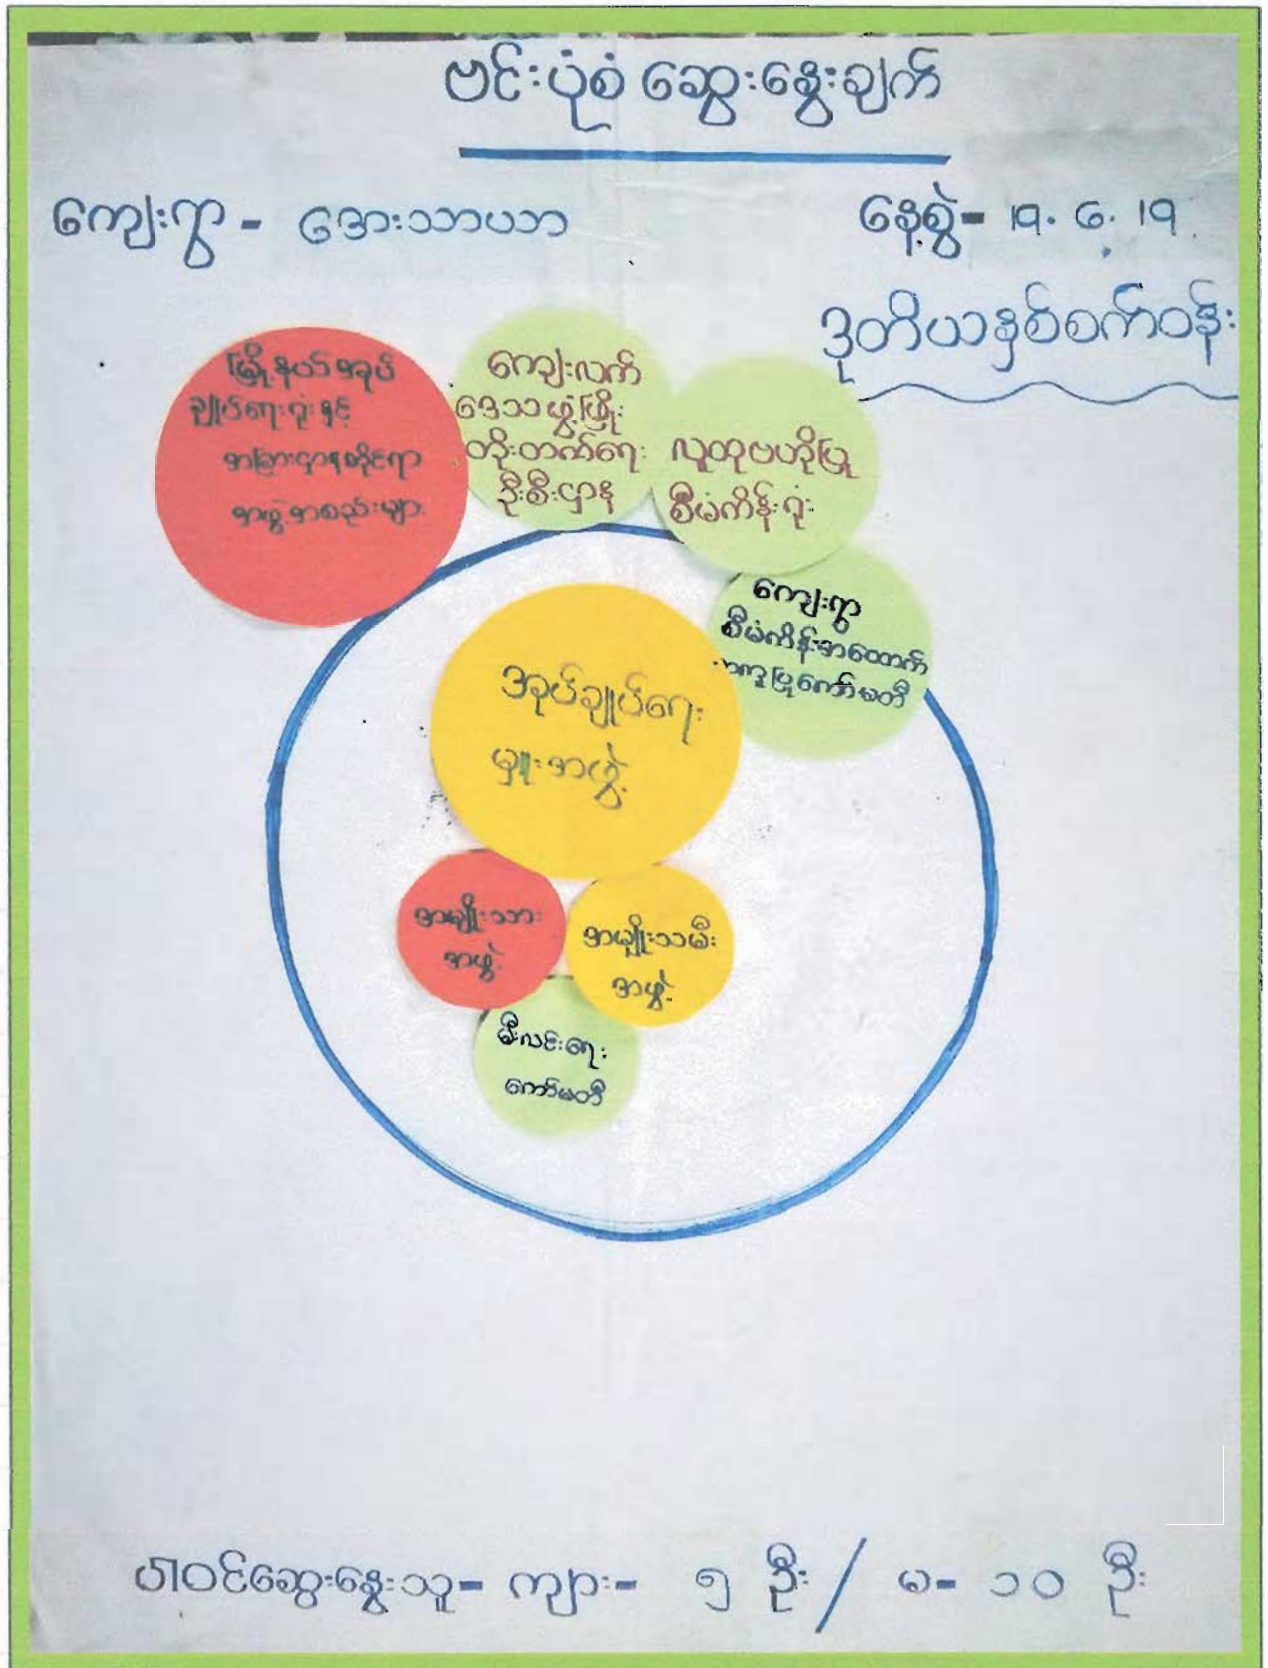 ဗင်းပုံစံ ဆွေးနွေးချက်
ကျေးရွာ - အေးသာယာ
နေ့စွဲ- 19. 6. 19
ဒုတိယနှစ်စက်ဝန်း
မြို့နယ်အုပ်
ချုပ်ရေးရုံးနှင့်
အခြားဌာနဆိုင်ရာ
အဖွဲ့အစည်းများ
ကျေးလက်
ဒေသဖွံ့ဖြိုး
တိုးတက်ရေး
ဦးစီးဌာန
လူထုဗဟိုပြု
စီမံကိန်းရုံး
ကျေးရွာ
စီမံကိန်းအထောက်
အကူပြုကော်မတီ
အုပ်ချုပ်ရေး
မှူးအဖွဲ့
အမျိုးသား
အဖွဲ့
အမျိုးသမီး
အဖွဲ့
မီးလင်းရေး
ကော်မတီ
ပါဝင်ဆွေးနွေးသူ- ကျား- ၅ ဦး / မ- ၁၀ ဦး